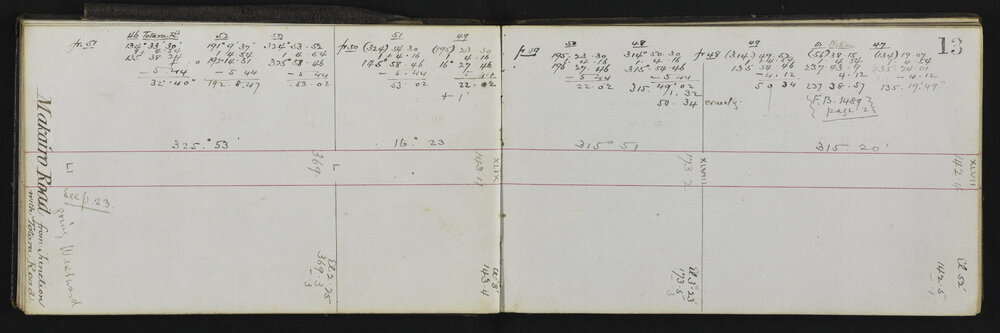 13
Makairo Road from Junction
with Totara Road.
Hb Totara Rd
fr. 51
134° 33. 30
1. 4. 54
135 38. 24
- 5. 44
32. 40
52
191° 9. 37
1. 4. 54
192. 14. 31
- 5 44
192. 8. 47
324° 53. 52
1. 4. 54
325° 58. 46
- 5. 44
53. 02
325.° 53'
L1
See p 23
going Westward
369.
L
369. 3
51
fr. 50 (324) 54 30
1. 4. 16
145° 58 46
- 5. 44
53. 02
49
(195) 23. 30
1. 4. 16
16° 27. 46
22. 02
+ 1'
16.° 23
XLIX
143.4
143.4
50
195. 23. 30
1. 4. 16
196 27. 46
- 5 44
22. 02
48
314° 50. 30
1. 4. 16
315° 54 46
- 5 44
315. 49' 02
1. 32
50. 34 exactly
315° 51
173. 2
XLVIII
173. 5
49
fr 48 (314) 49. 52
1. 4 54
135 54 46
- 4. 12
50 34
(56) 38. 15
1. 4. 54
4. 12
237 38. 57
{F.B. 1489}
{page 2}
47
(134) 19 07
1. 4 54
135. 24. 01
- 4. 12
135. 19. 49
315. 20'
XLVIII
142. 4
142. 5